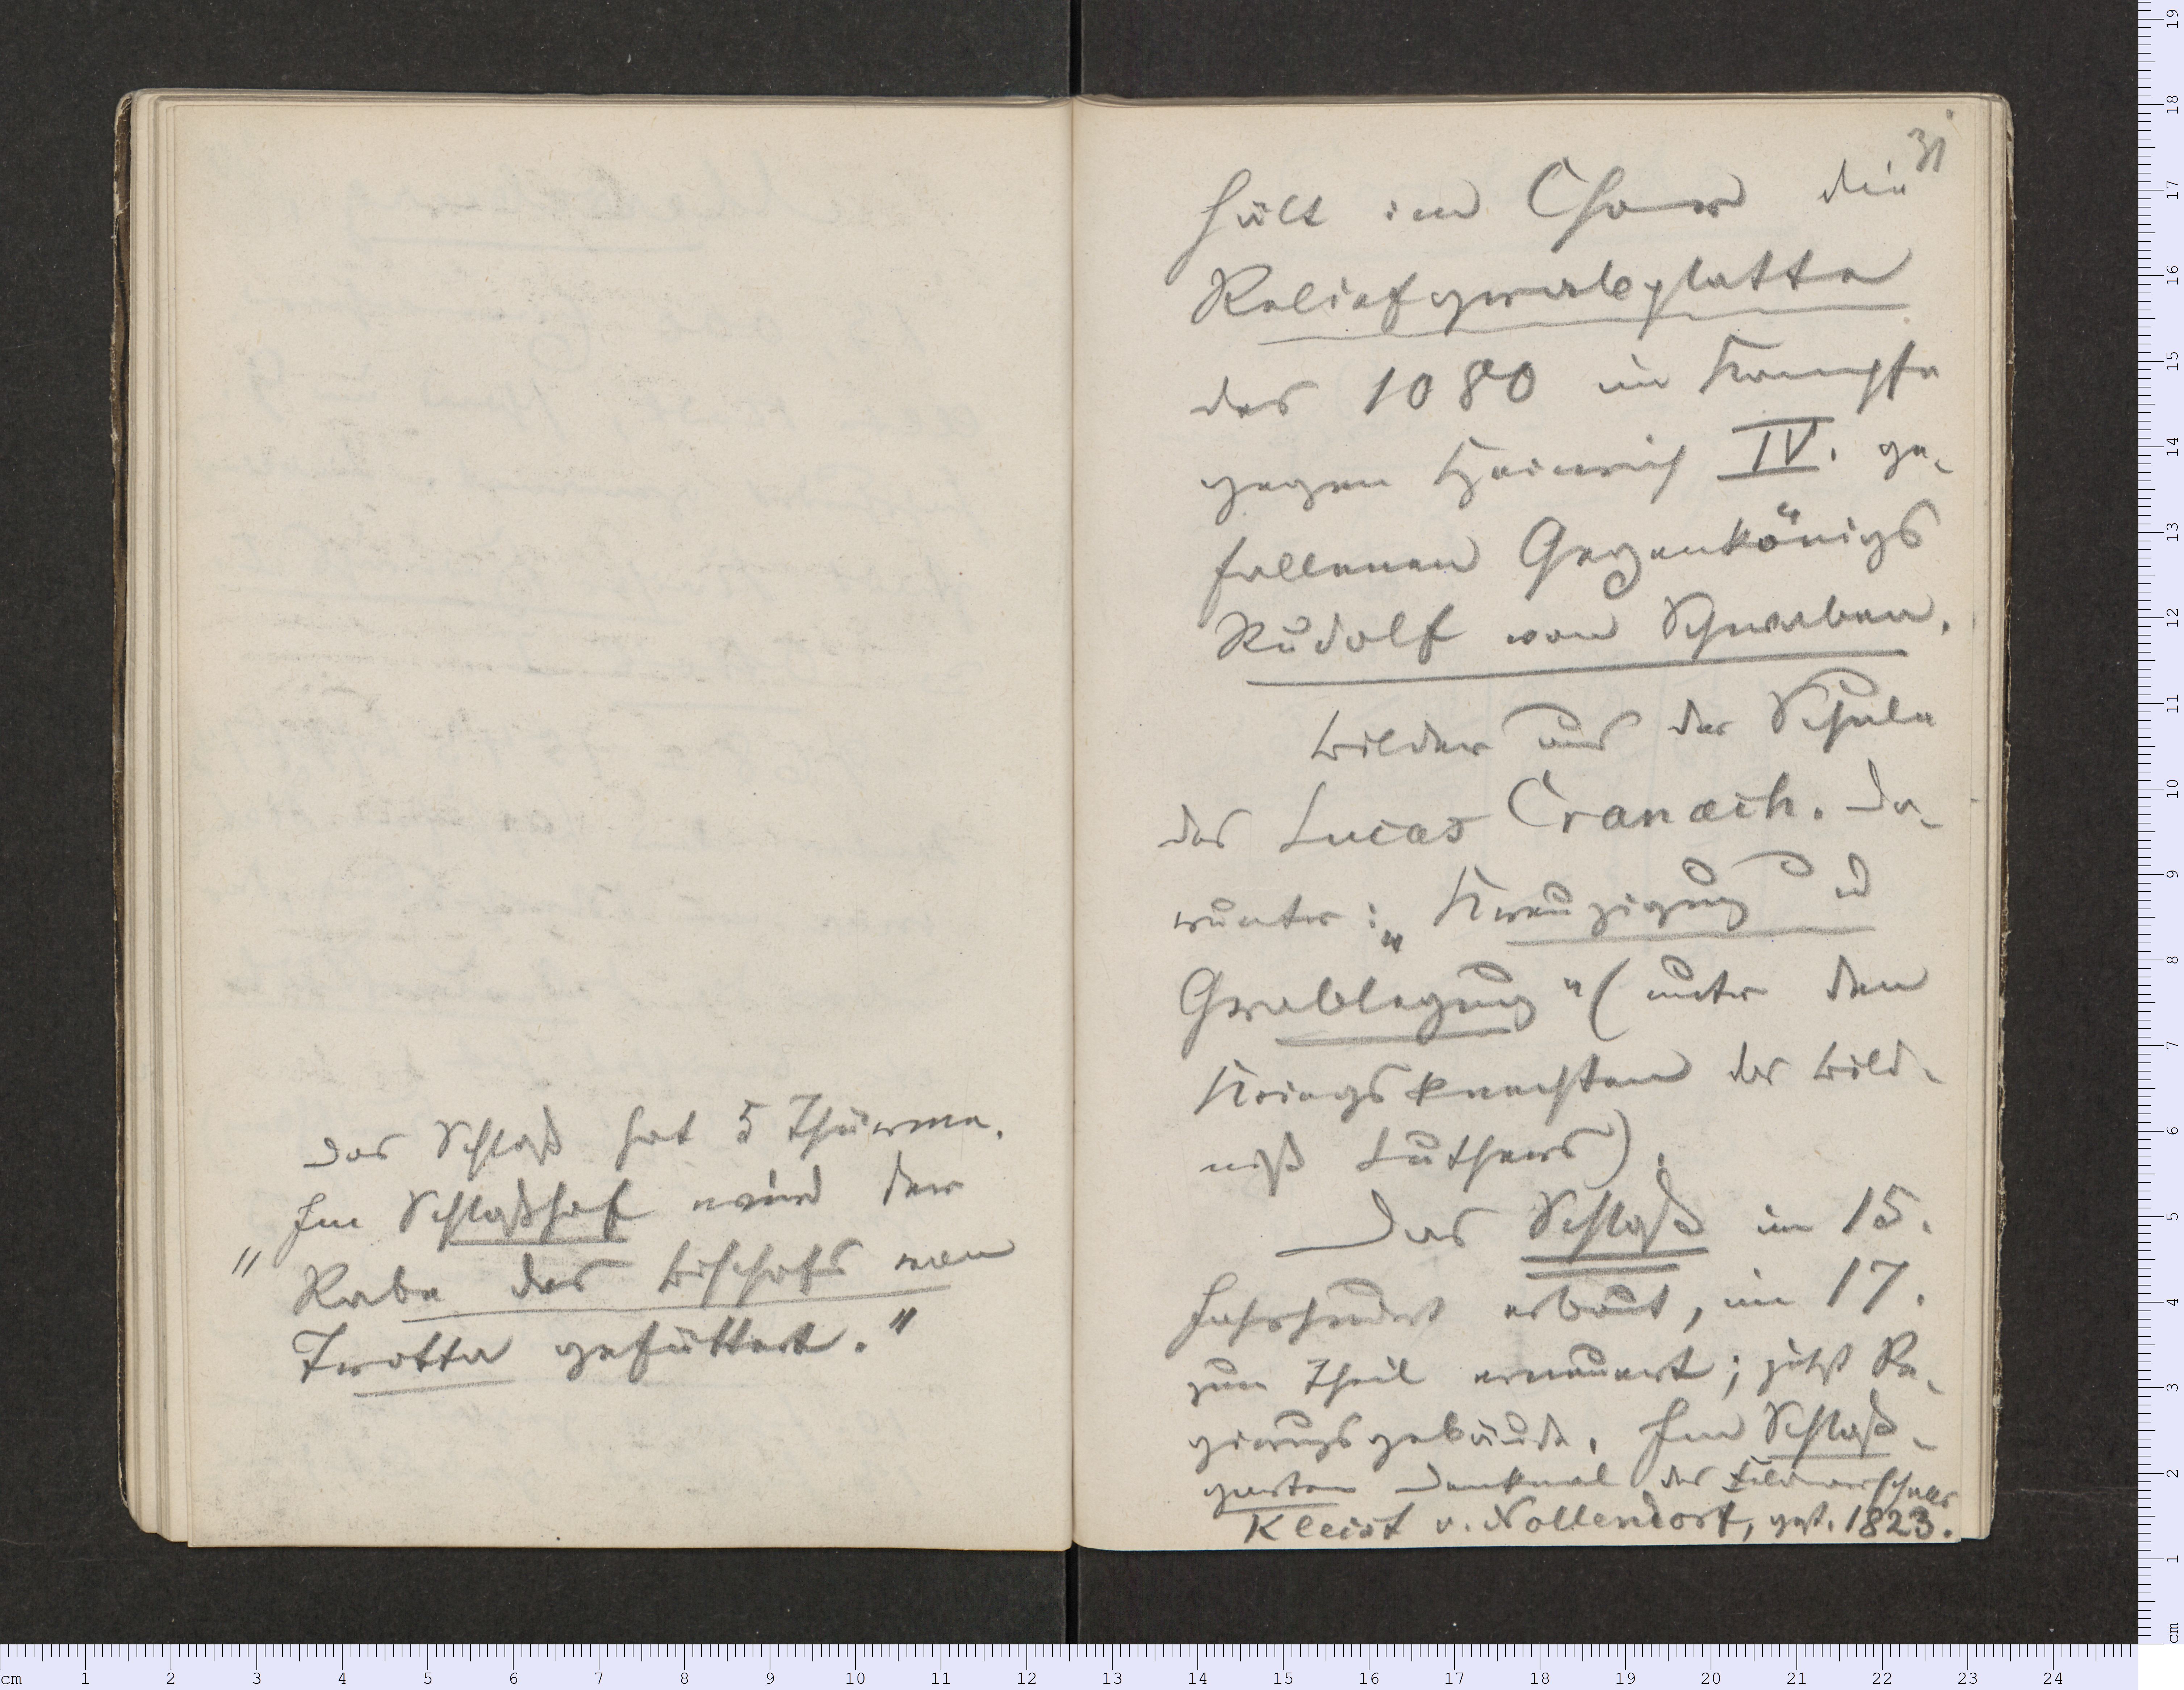 Das Schloß hat 5 Thürme.
Im Schloßhof wird der
"Rabe des Bischofs von
Trotta gefüttert."
31
hält im Chor die
Reliefgrabplatte
des 1080 im Kampfe
gegen Heinrich IV. ge-
fallenen Gegenkönigs
Rudolf von Schwaben.
Bilder aus der Schule
des Lucas Cranach. Da-
runter: „Kreuzigung u
Grablegung" (unter den
Kriegsknechten das Bild-
niß Luthers).
Das Schloß im 15.
Jahrhundert erbaut, im 17.
zum Theil erneuert; jetzt Re-
girungsgebäude. Im Schloß-
garten Denkmal des Feldmarschalls
Kleist v. Nollendorf, gest. 1823.